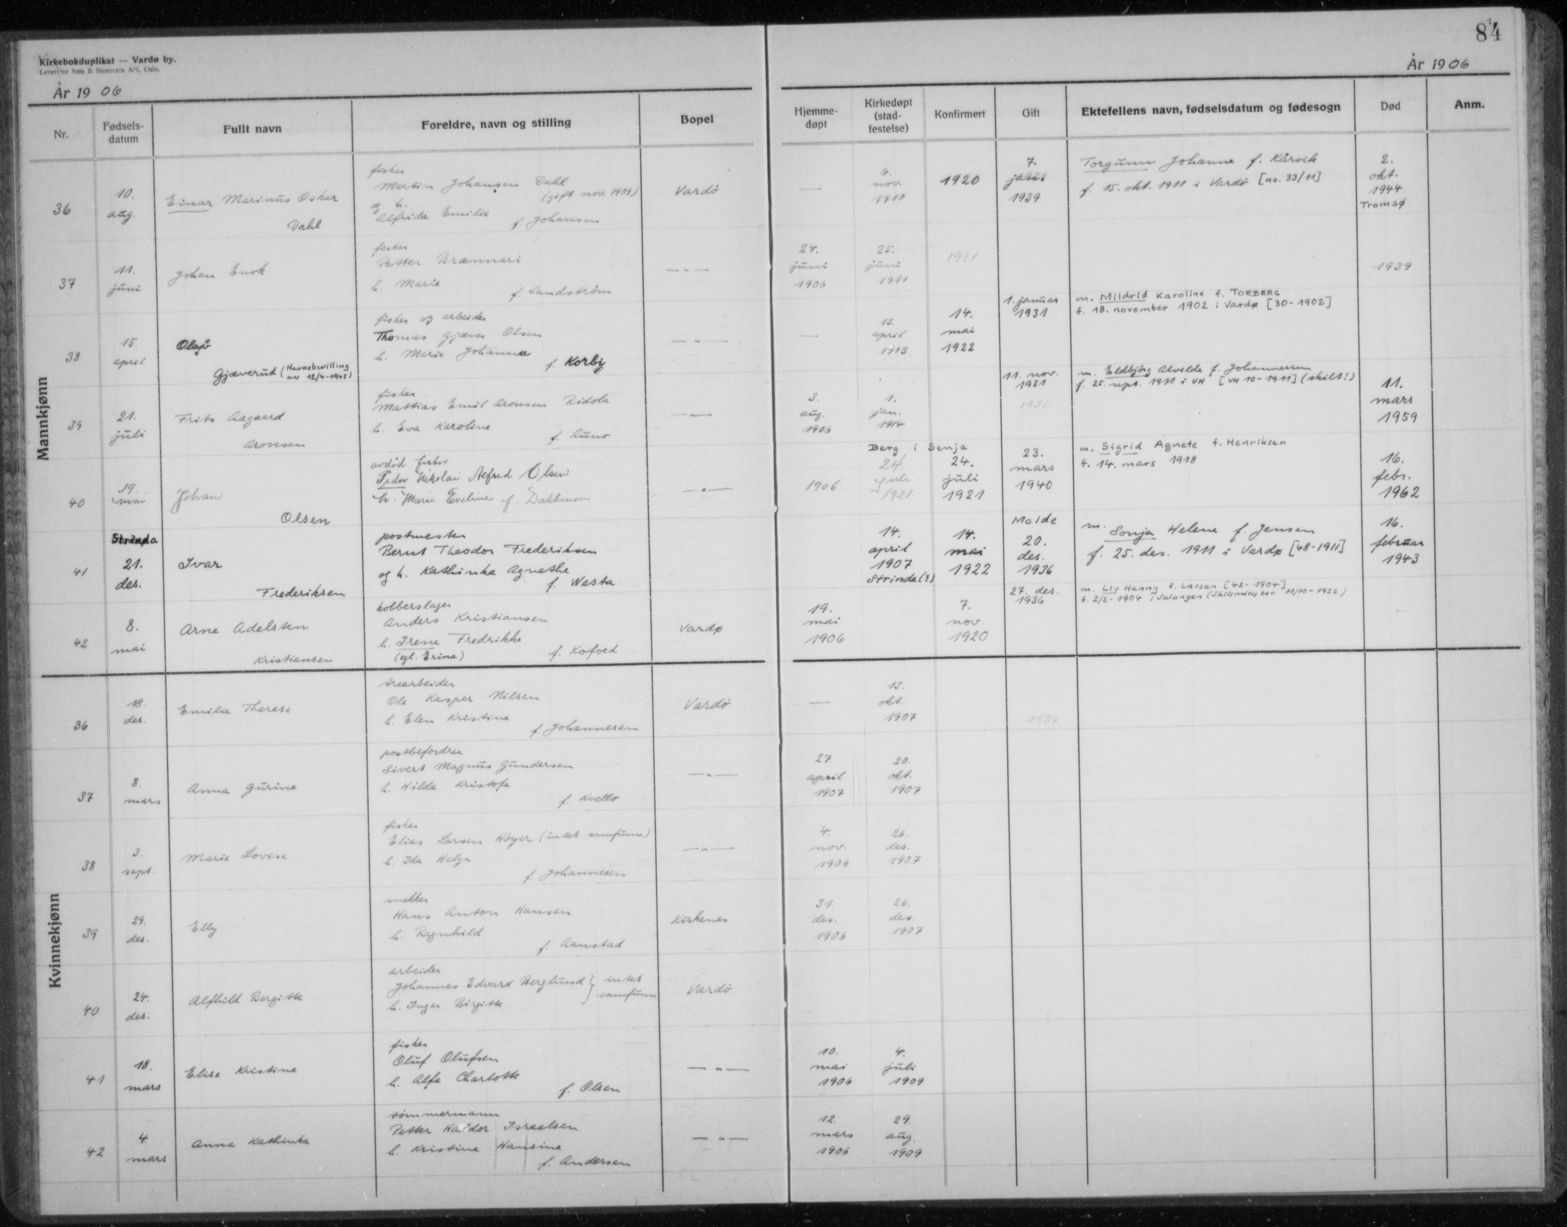 Kirkebokduplikat — Vardø by.
84
År 1906
År 1906
Nr.
Fødsels-
datum
Fullt navn
Foreldre, navn og stilling
Bopel
Hjemme-
døpt
Kirkedøpt
(stad-
festelse)
Konfirmert
Gift
Ektefellens navn, fødselsdatum og fødesogn
Død
Anm.
Mannkjønn
36
10.
aug.
Einar Marinus Oskar
Dahl
fisker
Martin Johansen Dahl
(gift nov. 1909)
og h.
Alfrida Emilie
f. Johansen
Vardø
—
6.
nov.
1910
1920
7.
1939
Torgunn Johanne f. Kårvik
f. 15. okt. 1911 i Vardø [no. 33/11]
2.
okt.
1944
Tromsø
37
11.
juni
Johan Enok
fisker
Petter Brænnari
h. Marie
f. Sandström
— " —
24.
juni
1906
25.
juni
1911
1921
1939
38
15.
april
Olaf
Gjæverud (Navnebevilling
av 12/4-1945)
fisker og arbeider
Thomas Gjæver Olsen
h. Marie Johanna
f. Korbi
— " —
—
13.
april
1913
14.
mai
1922
1. januar
1931
m. Mildrid Karoline f. TORBERG
f. 18. november 1902 i Vardø [30-1902]
39
21.
juli
Frits Aagaard
Aronsen
fisker
Mattias Emil Aronsen Ridola
h. Eva Karoline
f. Auno
— " —
3.
aug.
1906
1.
jan.
1914
11. nov.
1951
1921
m. Eldbjørg Alvilde f. Johannessen
f. 25. sept. 1911 i VH [VH 10-1911] (skilt!)
11.
mars
1959
40
19.
mai
Johan
Olsen
avdød fisker
Peder Nikolai Alfred Olsen
h. Marie Eveline f. Dahlman
— " —
1906
Berg i Senja
24.
juli
1921
24.
juli
1921
23.
mars
1940
m. Sigrid Agnete f. Henriksen
f. 14. mars 1918
16.
febr.
1962
41
Strinda
21.
des.
Ivar
Frederiksen
postmester
Bernt Theodor Frederiksen
og h. Kathinka Agnethe
f. Westa
14.
april
1907
Strinda (?)
14.
mai
1922
Molde
20.
des.
1936
m. Sonja Helene f. Jensen
f. 25. des. 1911 i Vardø [48-1911]
16.
februar
1943
42
8.
mai
Arne Adelsten
Kristiansen
kobberslager
Anders Kristiansen
h. Irene Fredrikke
(egl. Erina)
f. Kofoed
Vardø
19.
mai
1906
7.
nov.
1920
27. des.
1936
m. Liv Hanny f. Larsen [42-1904]
f. 2/2-1904 i Salangen
Kvinnekjønn
36
18.
des.
Emilie Therese
trearbeider
Ole Kasper Nilsen
h. Elen Kristine
f. Johannesen
Vardø
—
13.
okt.
1907
37
8.
mars
Anna Gurine
postbefordrer
Sivert Magnus Gundersen
h. Hilda Kristofa
f. Kvello
— " —
27.
april
1907
20.
okt.
1907
38
3.
sept.
Marie Lovise
fisker
Elias Larsen Høyer (intet samfunn)
h. Ida Helga
f. Johannesen
— " —
4.
nov.
1906
26.
des.
1907
39
29.
des.
Elly
snekker
Hans Anton Hansen
h. Ragnhild
f. Aanstad
Kirkenes
31.
des.
1906
26.
des.
1907
40
24.
des.
Alfhild Bergitte
arbeider
Johannes Edvard Berglund } intet
h. Inger Birgitte samfunn
Vardø
41
18.
mars
Elise Kristine
fisker
Oluf Olufsen
h. Alfa Charlotte
f. Olsen
— " —
10.
mai
1906
4.
juli
1909
42
4
mars
Anna Kathinka
tømmermann
Petter Haldor Israelsen
h. Kristine Hansine
f. Andersen
— " —
12.
mars
1906
29.
aug.
1909